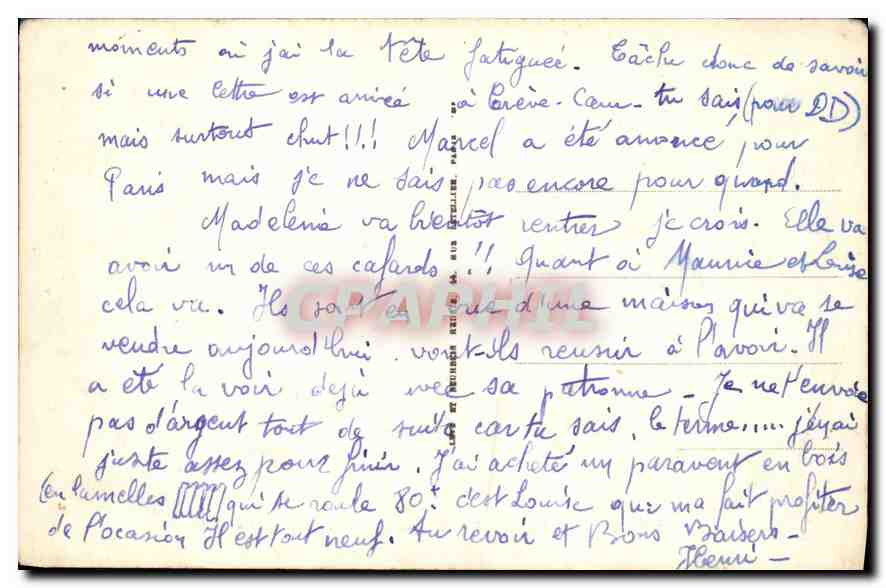 moments où j'ai la tête fatiguée. Tâche donc de savoir
si une lettre est arrivée à Crève-Cœur - tu sais (pour DD)
mais surtout chut!!! Marcel a été annoncé pour
Paris mais je ne sais pas encore pour quand.
Madeleine va bientôt rentrer je crois. Elle va
avoir un de ces cafards !!! Quant à Maurice et Louise
cela va. Ils sont en vue d'une maison qui va se
vendre aujourd'hui. vont-ils reussir à l'avoir. Il
a été la voir dejà avec sa patronne - Je ne t'envoie
pas d'argent tout de suite car tu sais, le terme..... j'en ai
juste assez pour finir. J'ai acheté un paravent en bois
(en lamelles qui se roule 80f. c'est Louise que m'a fait profiter
de l'ocasion Il est tout neuf. Au revoir et Bons Baisers -
Henri -
CPAPHIL